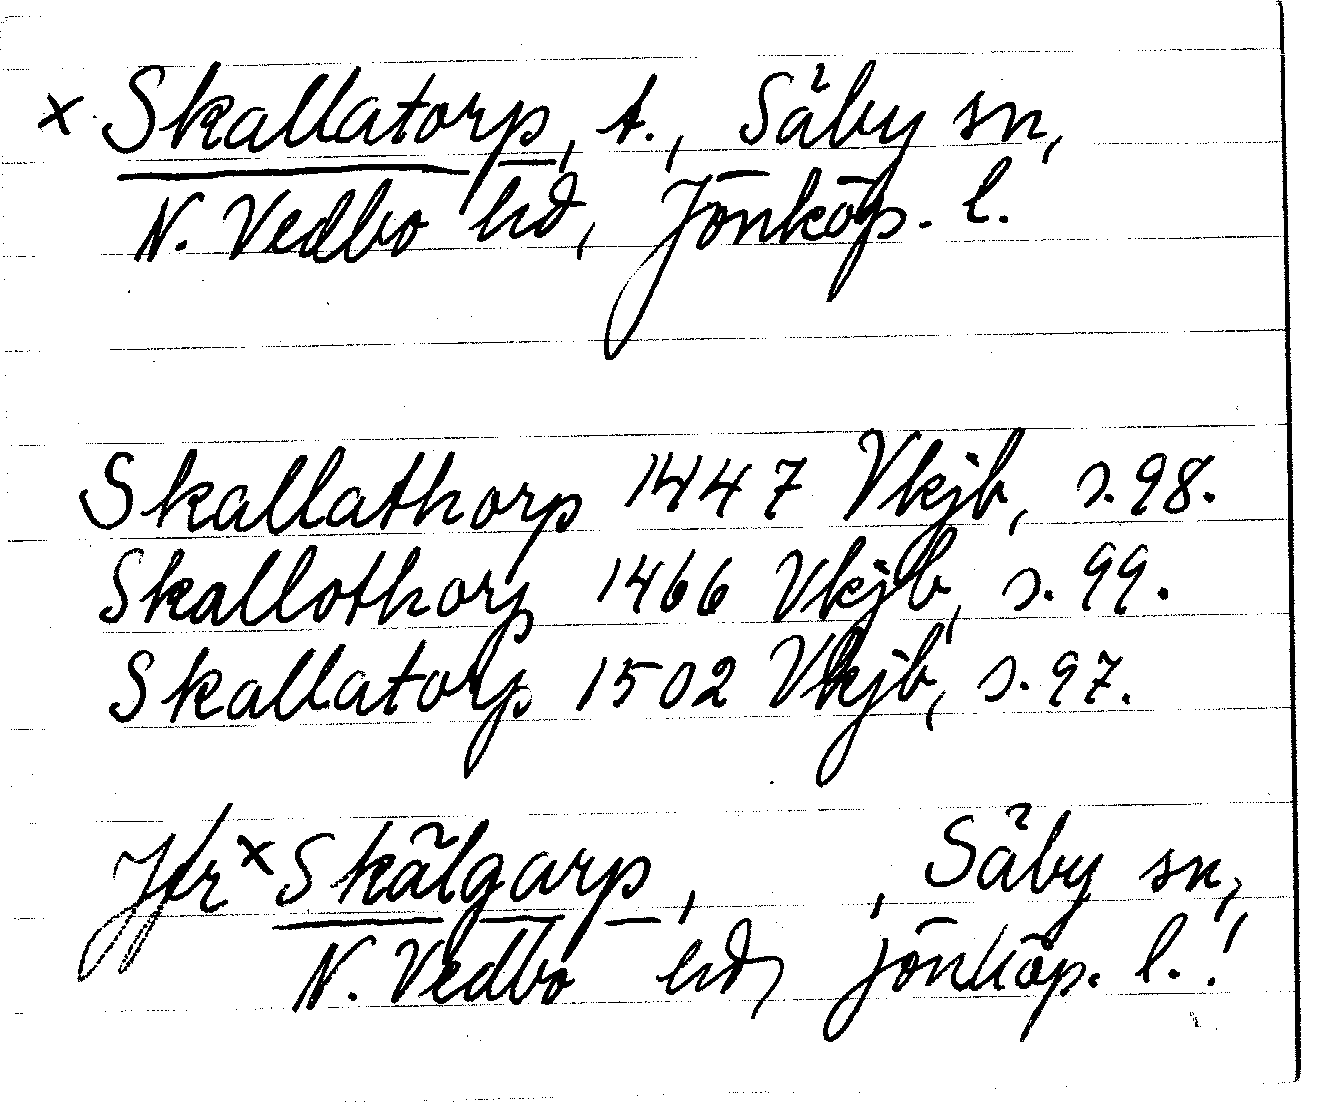 x Skallatorp, t., Säby sn,
N. Vedbo hd, Jönköp. l.
Skallathorp 1447 Vkjb, s. 98.
Skallothorp 1466 Vkjb, s. 99.
Skallatorp 1502 Vkjb, s. 97.
Jfr x Skälgarp, , Säby sn,
N. Vedbo hd, Jönköp. l.!